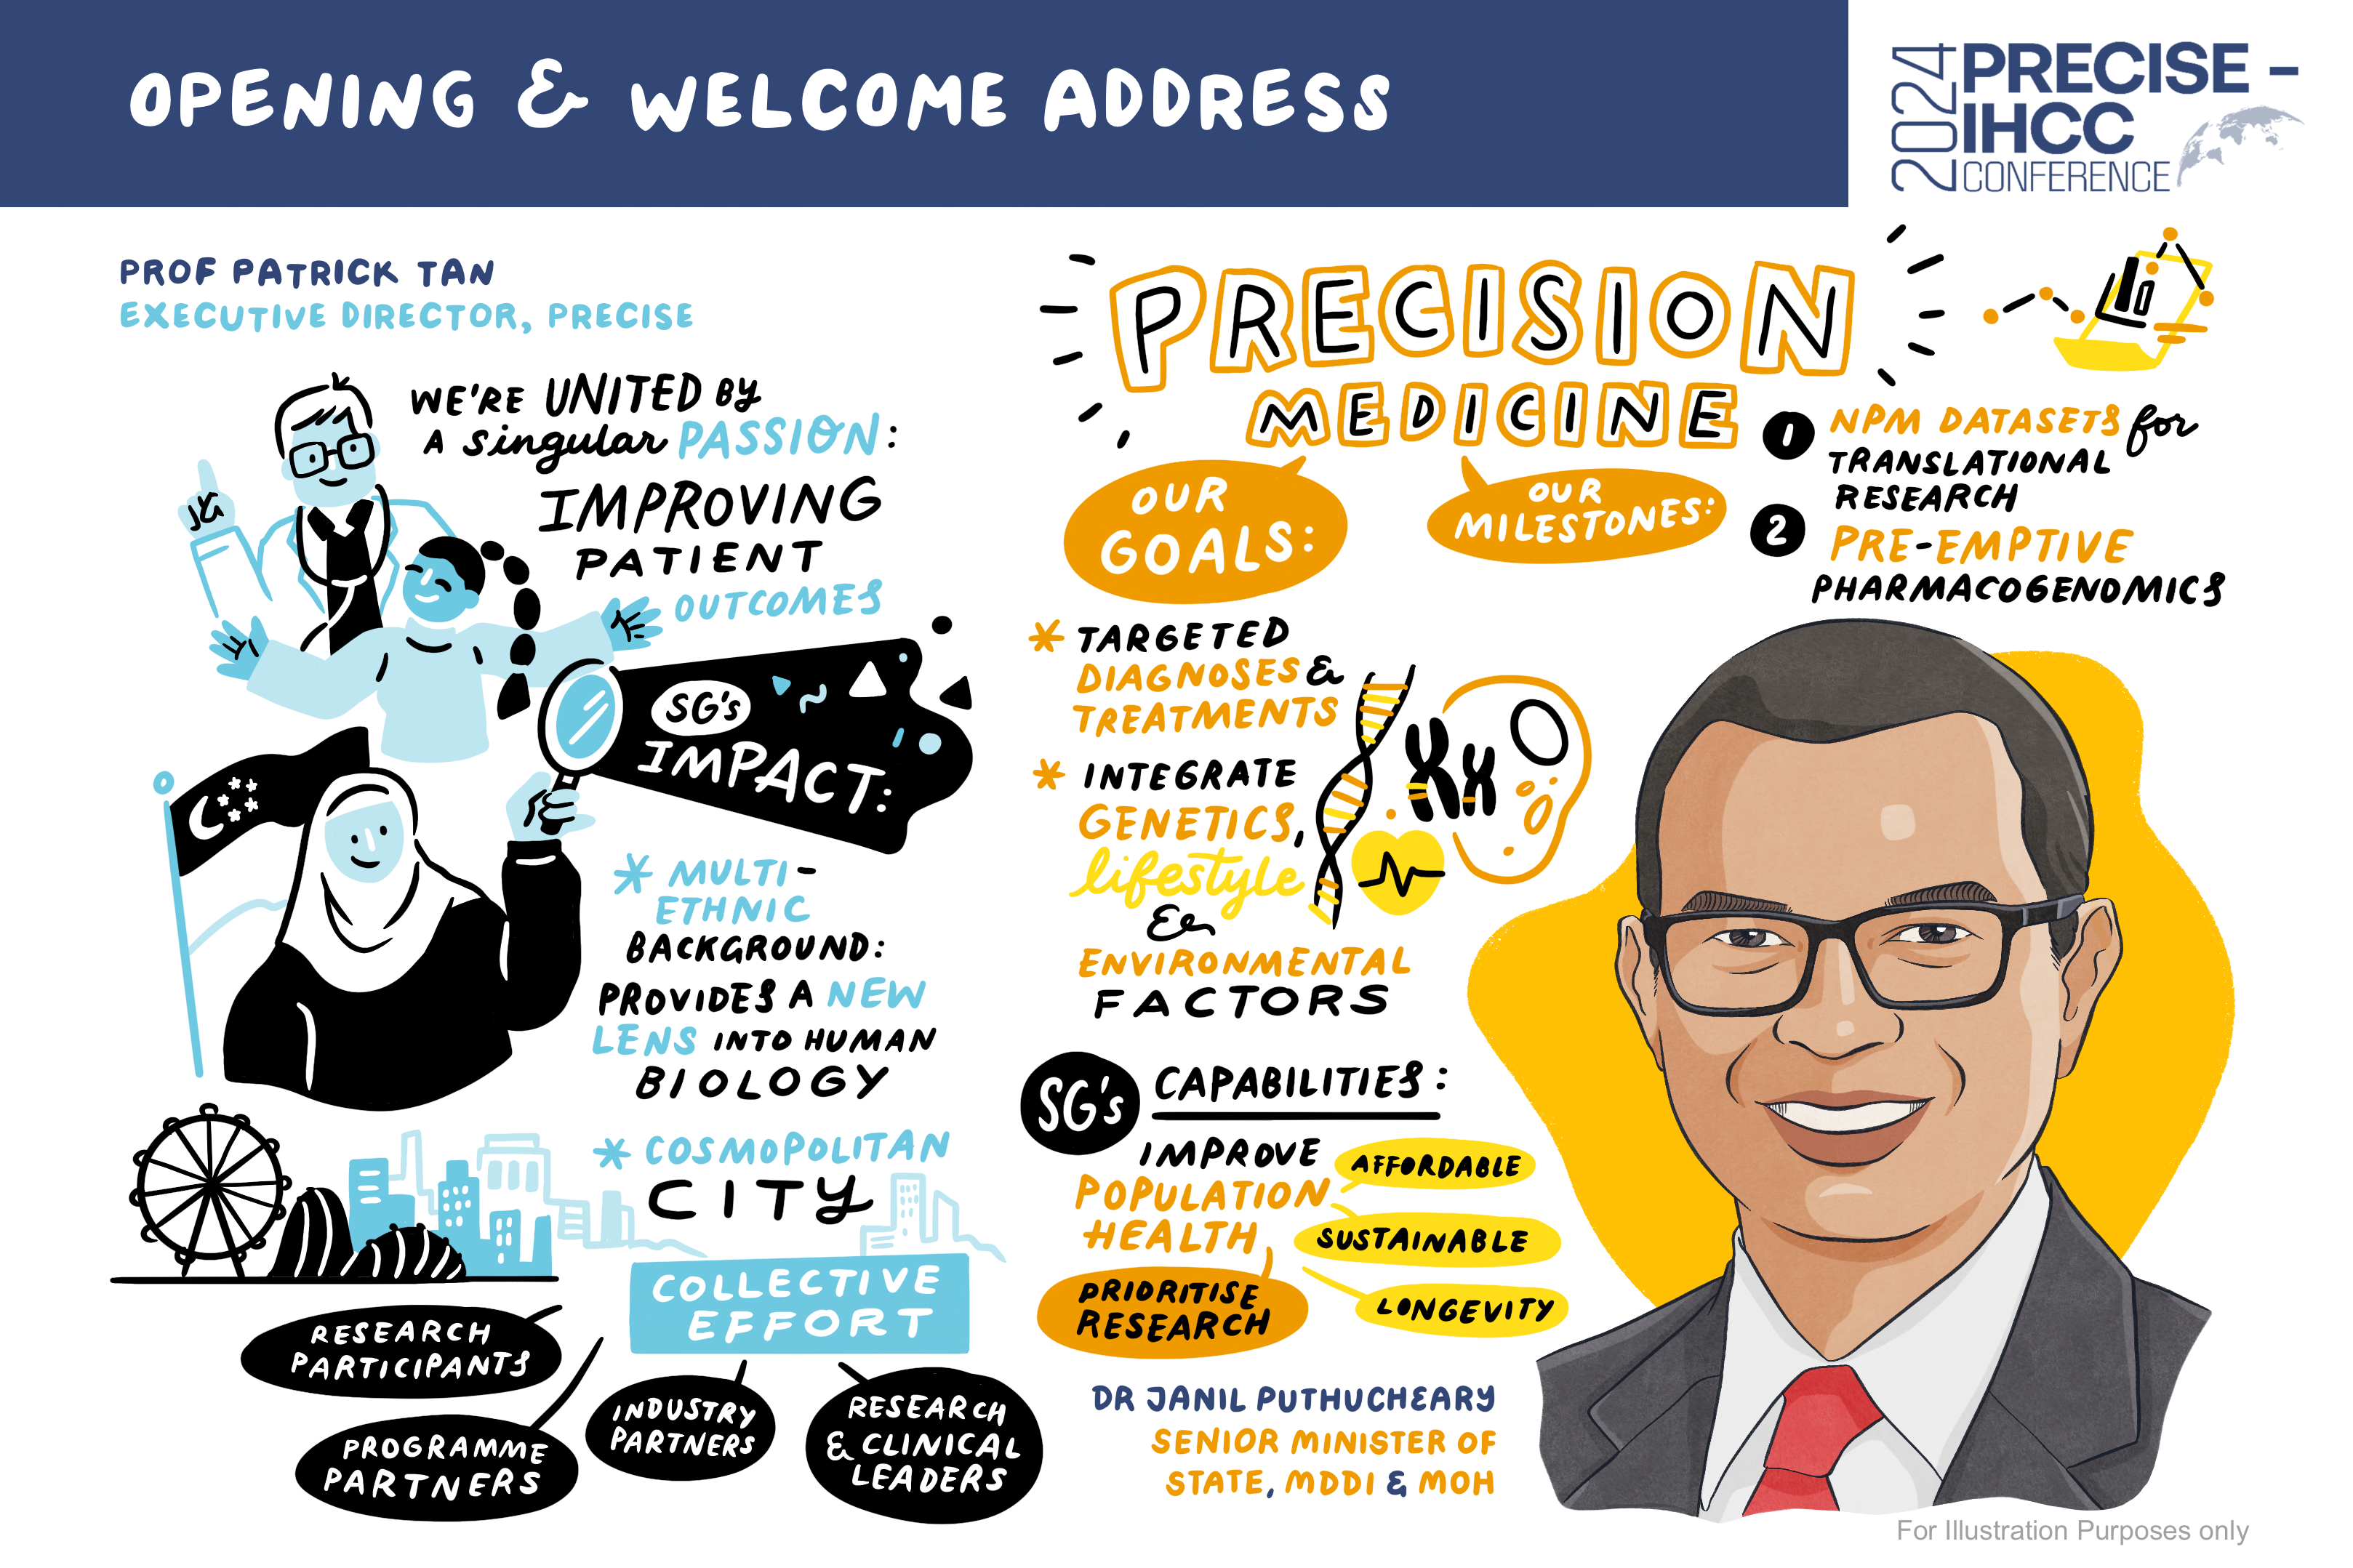 OPENING & WELCOME ADDRESS
2024
PRECISE –
IHCC
CONFERENCE
PROF PATRICK TAN
EXECUTIVE DIRECTOR, PRECISE
WE'RE UNITED BY
A singular PASSION:
IMPROVING
PATIENT
OUTCOMES
SG's
IMPACT:
* MULTI-
ETHNIC
BACKGROUND:
PROVIDES A NEW
LENS INTO HUMAN
BIOLOGY
* COSMOPOLITAN
CITY
COLLECTIVE
EFFORT
RESEARCH
PARTICIPANTS
PROGRAMME
PARTNERS
INDUSTRY
PARTNERS
RESEARCH
& CLINICAL
LEADERS
PRECISION
MEDICINE
OUR
GOALS:
* TARGETED
DIAGNOSES &
TREATMENTS
* INTEGRATE
GENETICS,
lifestyle
&
ENVIRONMENTAL
FACTORS
OUR
MILESTONES:
1 NPM DATASETS for
TRANSLATIONAL
RESEARCH
2 PRE-EMPTIVE
PHARMACOGENOMICS
SG's CAPABILITIES:
IMPROVE
POPULATION
HEALTH
AFFORDABLE
SUSTAINABLE
LONGEVITY
PRIORITISE
RESEARCH
DR JANIL PUTHUCHEARY
SENIOR MINISTER OF
STATE, MDDI & MOH
For Illustration Purposes only